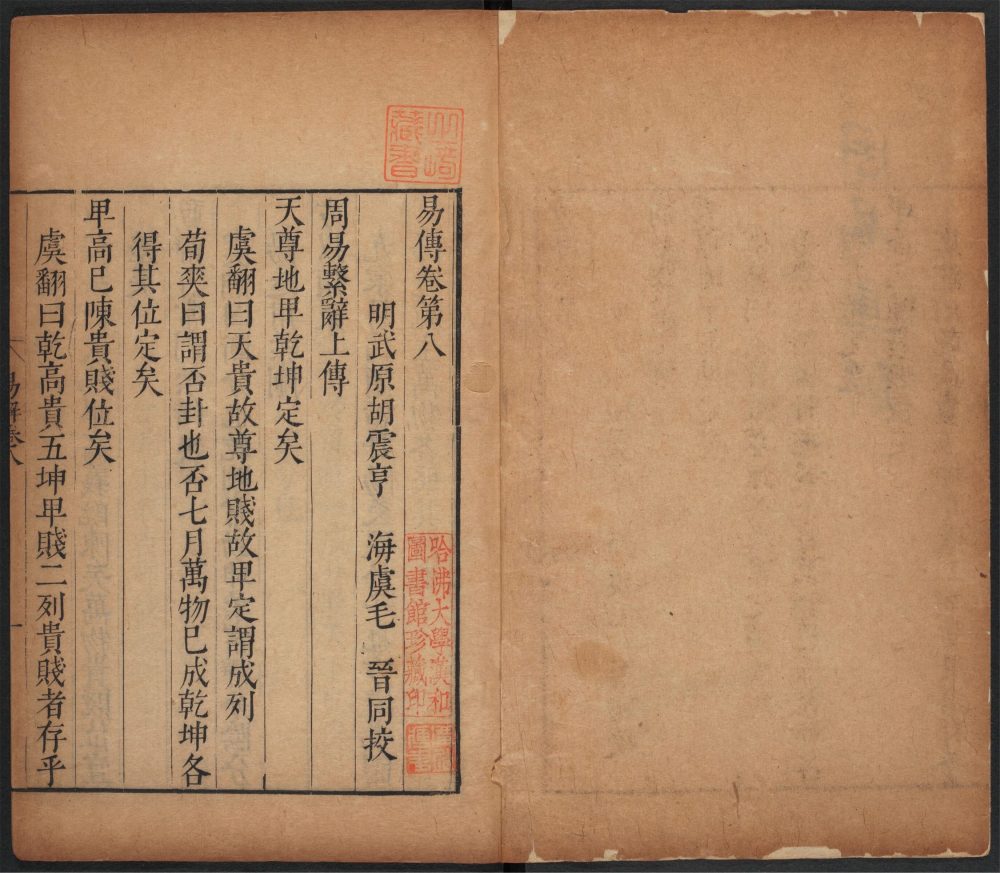 易傳卷第八
明武原胡震亨　海虞毛　晉同挍
周易繫辭上傳
天尊地卑乾坤定矣
虞翻曰天貴故尊地賤故卑定謂成列
荀爽曰謂否卦也否七月萬物已成乾坤各
得其位定矣
卑高已陳貴賤位矣
虞翻曰乾高貴五坤卑賤二列貴賤者存乎
易解卷八
一
藏書
哈佛大學漢和
圖書館珍藏印